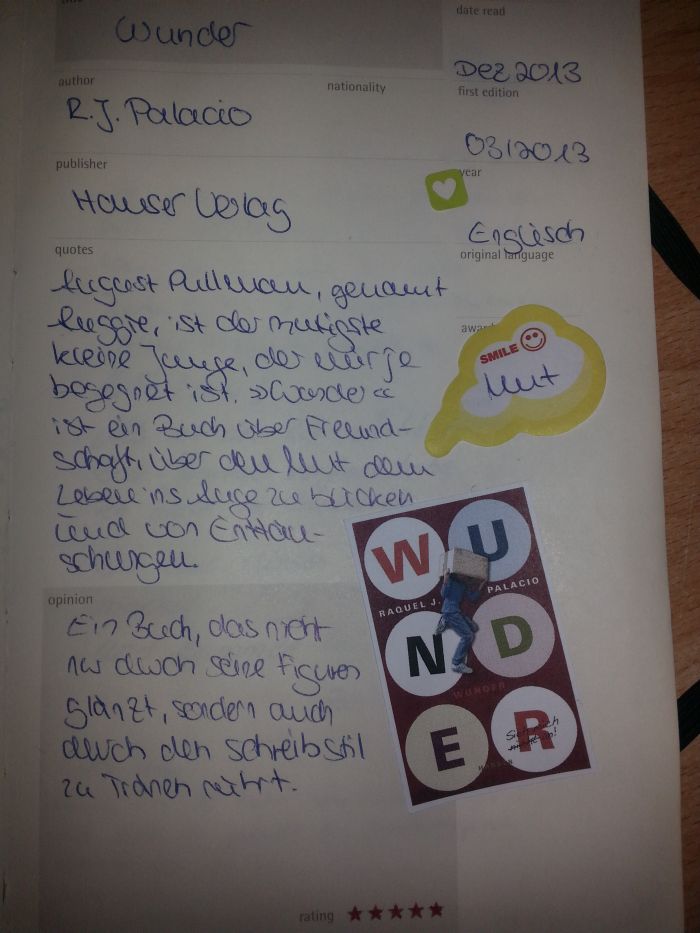 title
Wunder
date read
Dez 2013
author
nationality
R.J. Palacio
first edition
03/2013
publisher
year
Hanser Verlag
Englisch
original language
quotes
August Pullman, genannt
Auggie, ist der mutigste
kleine Junge, der mir je
begegnet ist. »Wunder«
ist ein Buch über Freund-
schaft, über den Mut dem
Leben ins Auge zu blicken
und von Enttäu-
schungen.
awards
SMILE
Mut
opinion
Ein Buch, das nicht
nur durch seine Figuren
glänzt, sondern auch
durch den Schreibstil
zu Tränen rührt.
W U
RAQUEL J. PALACIO
N D
WUNDER
E R
Sieh mich
HANSER
rating